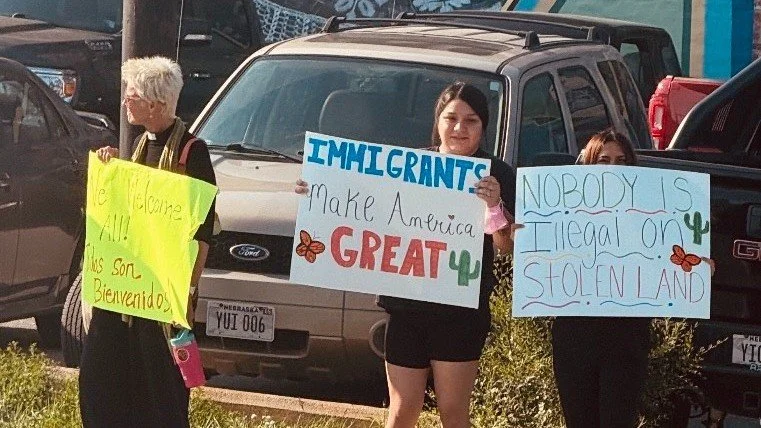 We Welcome
All!
Todos son
Bienvenidos
IMMIGRANTS
Make America
GREAT
NOBODY IS
Illegal on
STOLEN LAND
Ford
NEBRASKA
YUI 006
G
YI